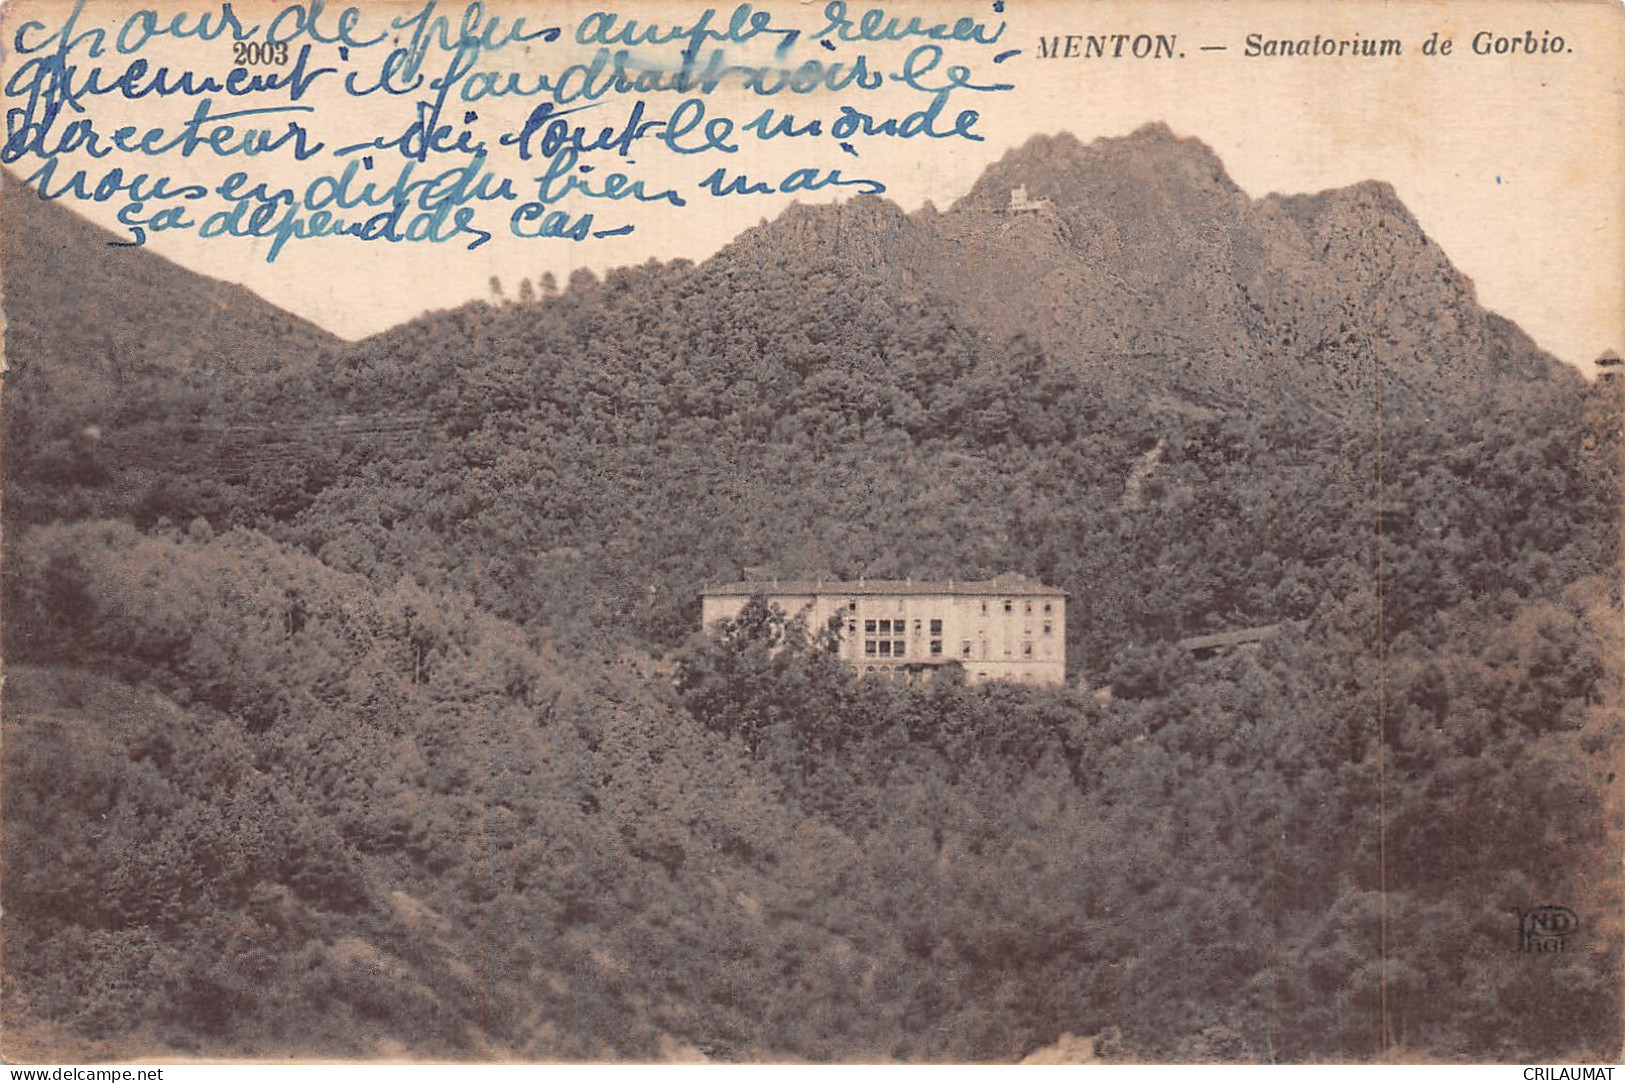 pour de plus amples rensei
2003
MENTON. — Sanatorium de Gorbio.
gnement il faudrait voir le
directeur — ici tout le monde
nous en dit du bien mais
ça dépend des cas —
ND
Phot
delcampe.net
CRILAUMAT